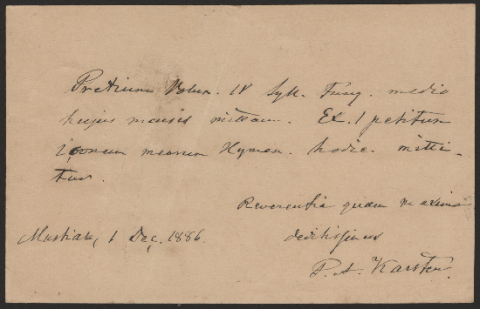 Pretium Volum. IV Syll. Fung. medio
hujus mensis mittam. Ex. 1 petitum
Iconum mearum Hymen. hodie mitti-
tur.
Reverentia quam maxima
deditissimus
Mustiala, 1 Dec. 1886.
P. A. Karsten.